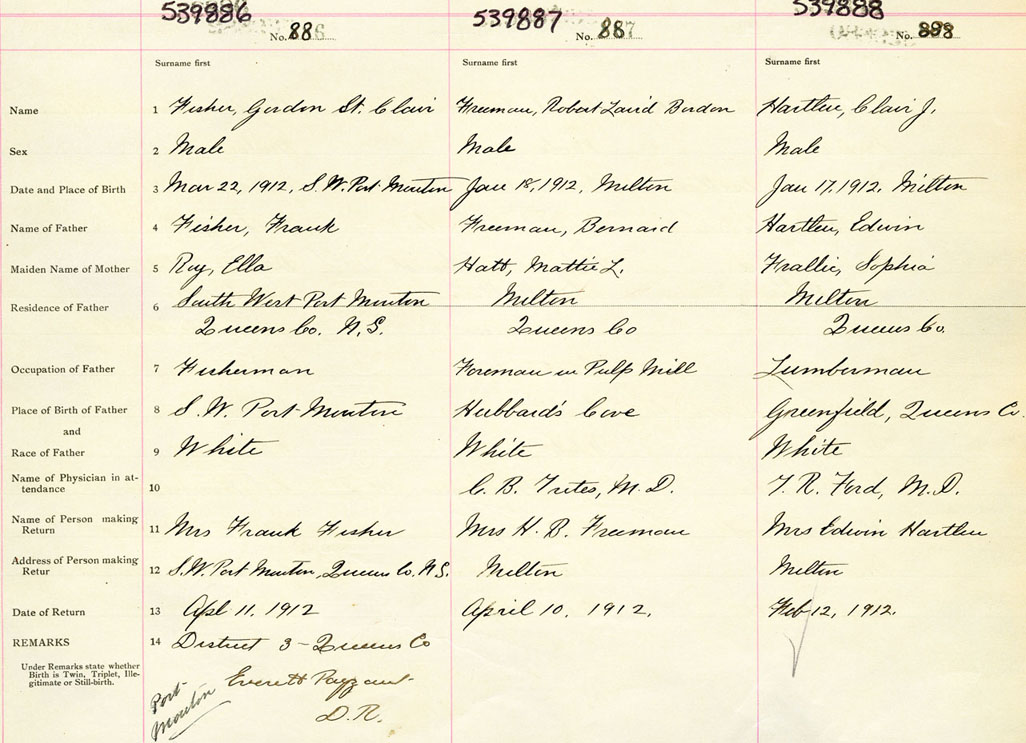 539886 539887 539888
No. 886 No. 887 No. 888
Surname first Surname first Surname first
Name 1 Fisher, Gordon St. Clair Freeman, Robert Laird Borden Hartlen, Clair J.
Sex 2 Male Male Male
Date and Place of Birth 3 Mar 22, 1912, S.W. Port Mouton Jan 18, 1912, Milton Jan 17, 1912, Milton
Name of Father 4 Fisher, Frank Freeman, Bernard Hartlen, Edwin
Maiden Name of Mother 5 Roy, Ella Hatt, Mattie L. Frallic, Sophia
Residence of Father 6 South West Port Mouton Milton Milton
Queens Co. N.S. Queens Co Queens Co.
Occupation of Father 7 Fisherman Foreman in Pulp Mill Lumberman
Place of Birth of Father 8 S. W. Port Mouton Hubbard's Cove Greenfield, Queens Co.
and
Race of Father 9 White White White
Name of Physician in at-
tendance 10 C. B. Trites, M.D. T. R. Ford, M.D.
Name of Person making
Return 11 Mrs Frank Fisher Mrs H. B. Freeman Mrs Edwin Hartlen
Address of Person making
Retur 12 S.W. Port Mouton, Queens Co. N.S. Milton Milton
Date of Return 13 Apl 11. 1912 April 10. 1912. Feb 12, 1912.
REMARKS 14 District 3 - Queens Co
Under Remarks state whether
Birth is Twin, Triplet, Ille-
gitimate or Still-birth.
Everett Payzant
D.R.
Port
Mouton